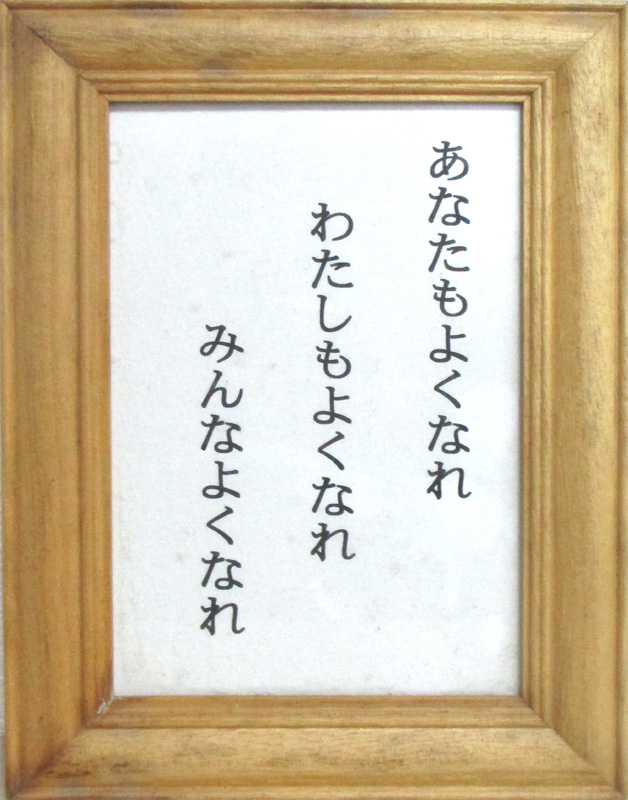 あなたもよくなれ
わたしもよくなれ
みんなよくなれ